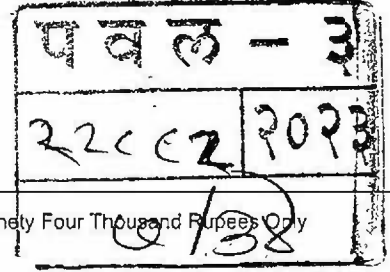 पवल - ३
२२८८२ २०२३
nety Four Thousand Rupees Only
७/३४